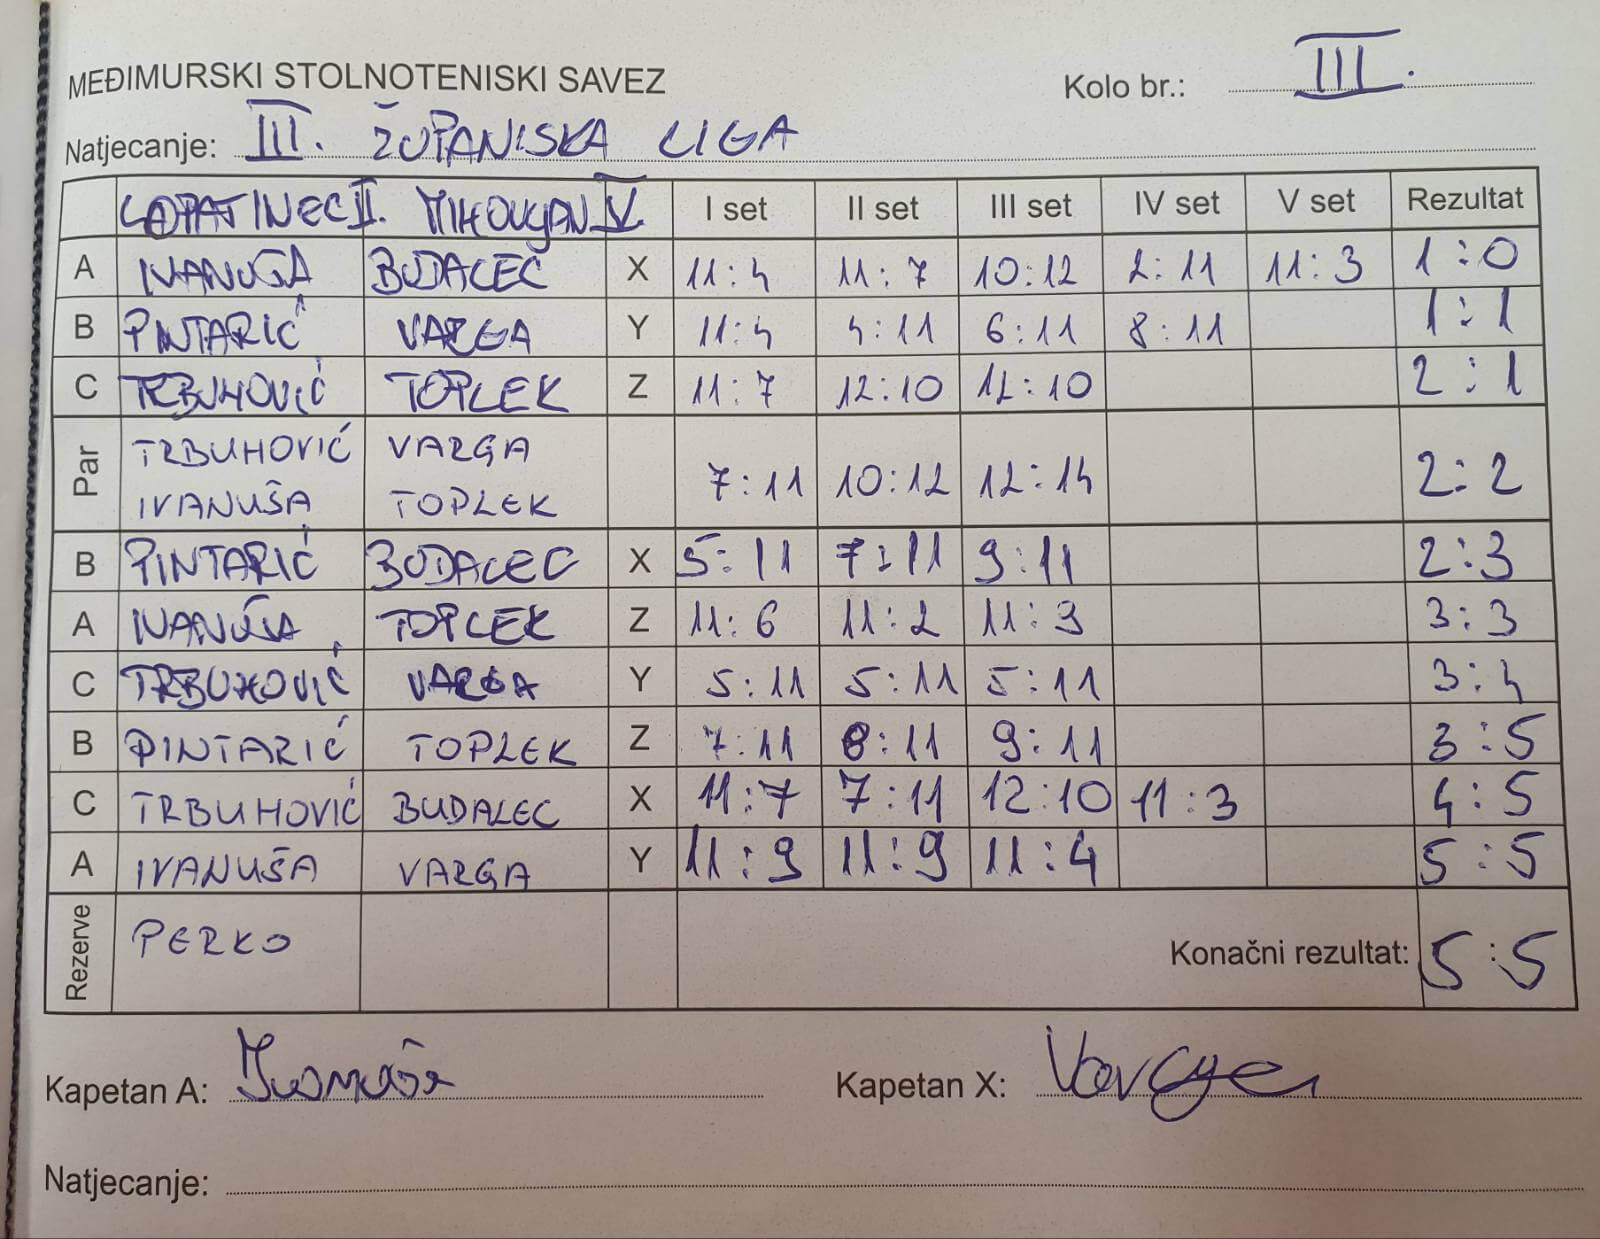 MEĐIMURSKI STOLNOTENISKI SAVEZ
Kolo br.: III.
Natjecanje: III. ŽUPANISKA LIGA
LOPATINEC II. MIHOVLJAN IV I set II set III set IV set V set Rezultat
A IVANUŠA BUDALEC X 11:4 11:7 10:12 2:11 11:3 1:0
B PINTARIĆ VARGA Y 11:4 4:11 6:11 8:11 1:1
C TRBUHOVIĆ TOPLEK Z 11:7 12:10 12:10 2:1
Par TRBUHOVIĆ VARGA
IVANUŠA TOPLEK 7:11 10:12 12:14 2:2
B PINTARIĆ BUDALEC X 5:11 7:11 9:11 2:3
A IVANUŠA TOPLEK Z 11:6 11:2 11:9 3:3
C TRBUHOVIĆ VARGA Y 5:11 5:11 5:11 3:4
B PINTARIĆ TOPLEK Z 7:11 8:11 9:11 3:5
C TRBUHOVIĆ BUDALEC X 11:7 7:11 12:10 11:3 4:5
A IVANUŠA VARGA Y 11:9 11:9 11:4 5:5
Rezerve PERKO Konačni rezultat: 5:5
Kapetan A: Ivanuša Kapetan X: Varga
Natjecanje: